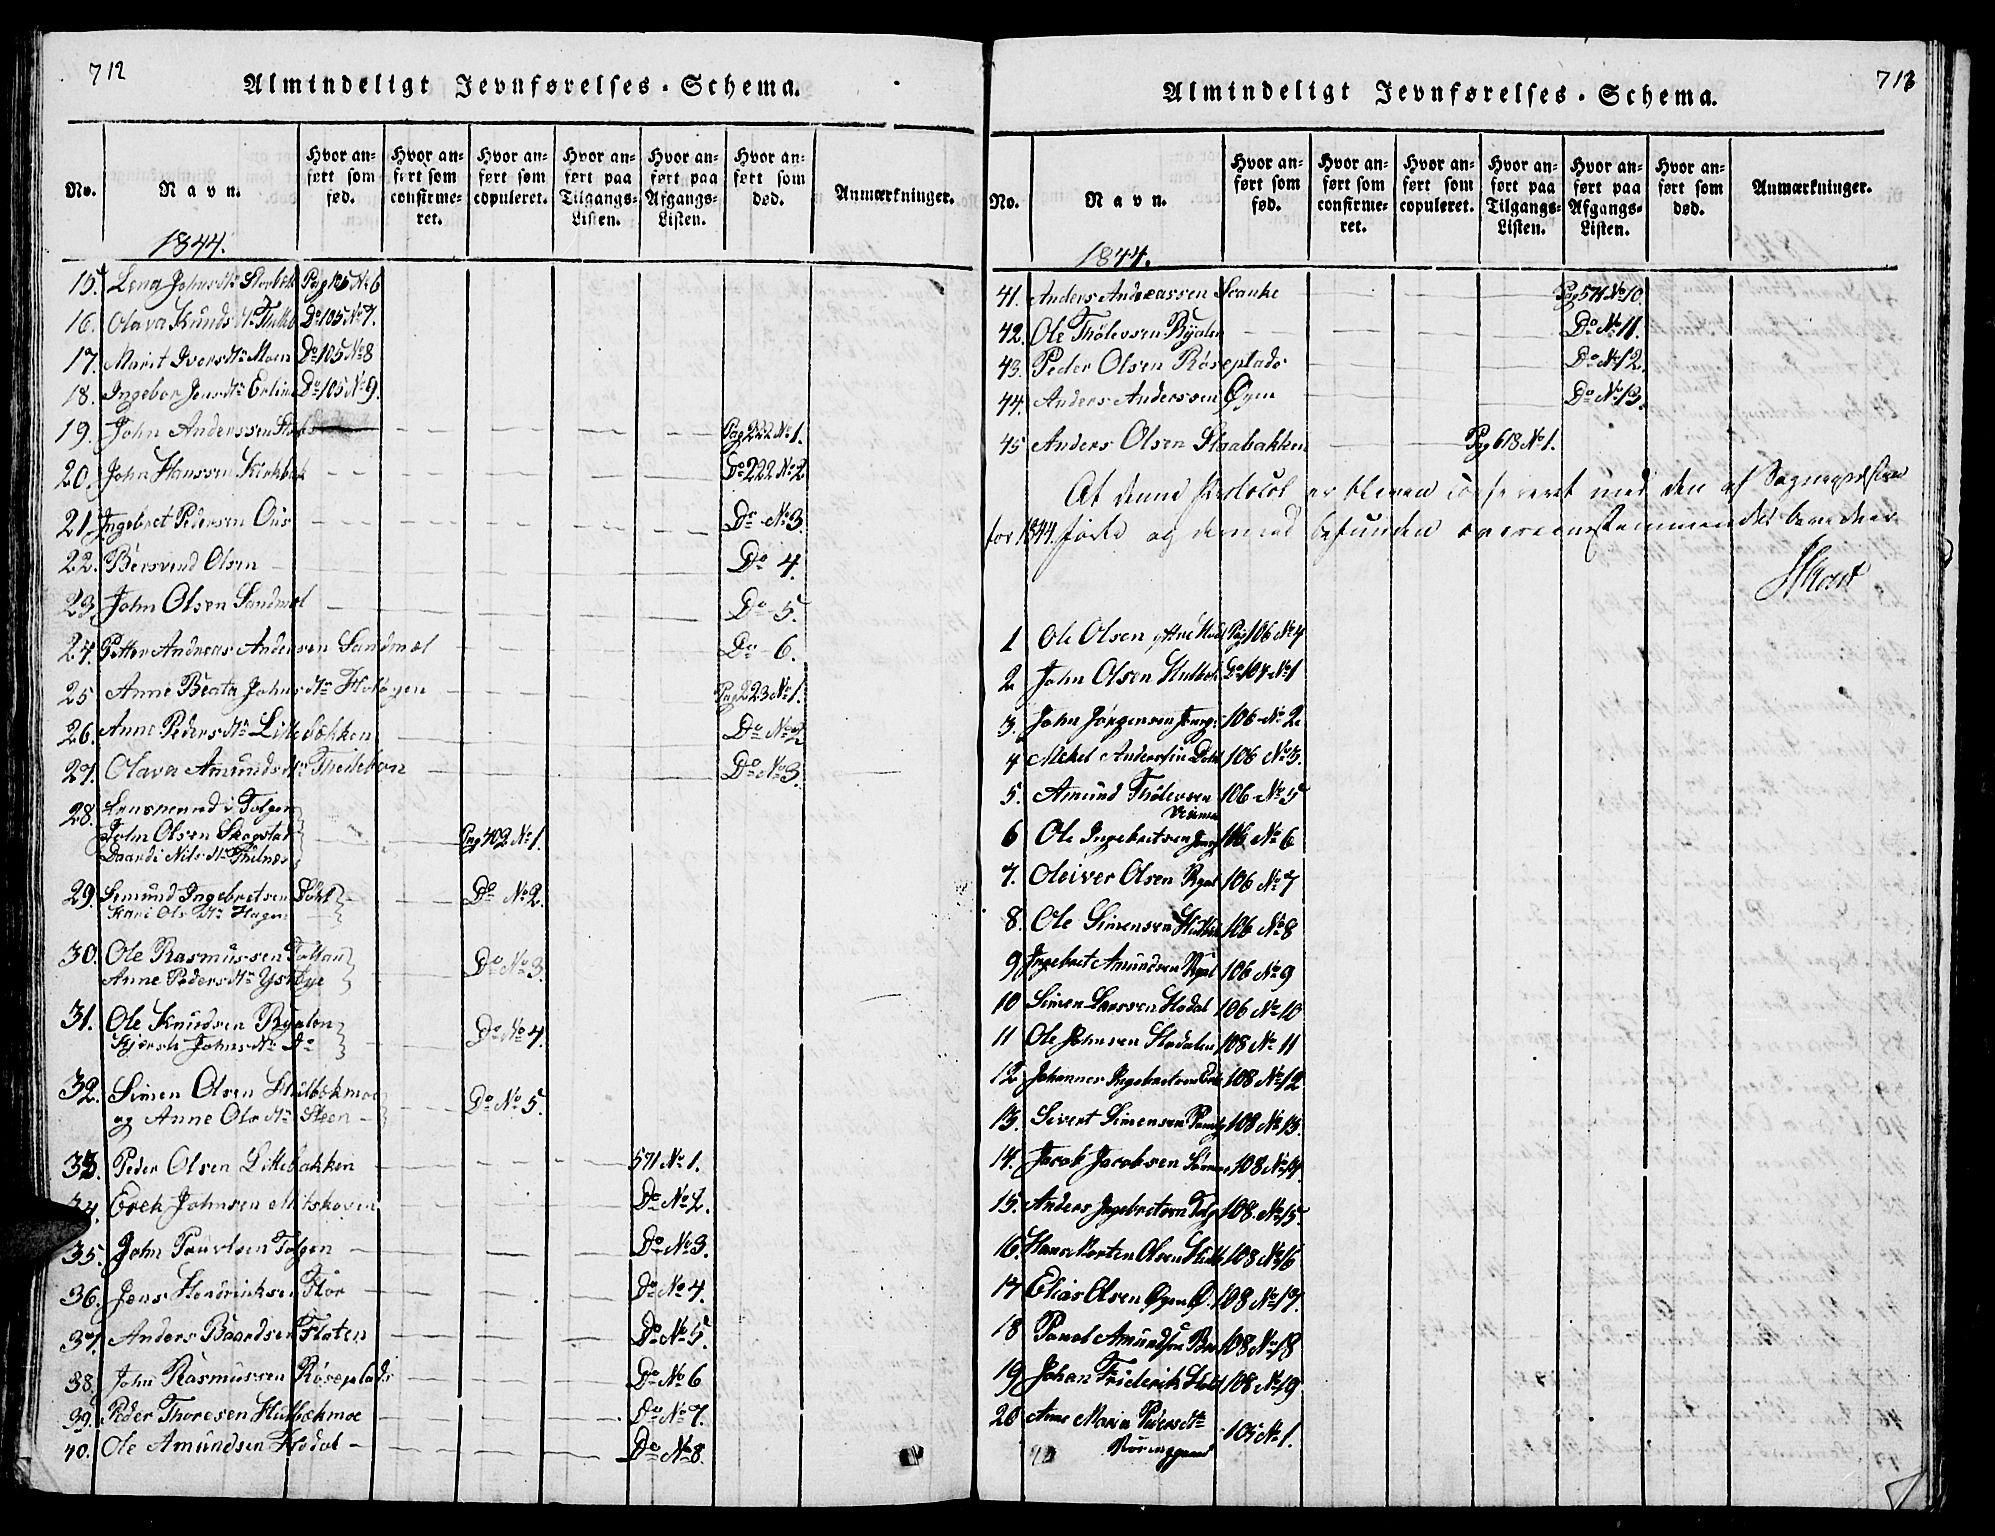 712
Almindeligt Jevnførelses-Schema.
No.
Navn.
Hvor anført som fød.
Hvor anført som confirmeret.
Hvor anført som copuleret.
Hvor anført paa Tilgangs-Listen.
Hvor anført paa Afgangs-Listen.
Hvor anført som død.
Anmærkninger.
1844.
15. Lena Johnsdtr Pag 105 No 6
16. Olava Knudsdtr Do 105 No 7.
17. Marit Iversdtr Moen Do 105 No 8
18. Ingebor Jensdtr Do 105 No 9.
19. John Anderssen Pag 222 No 1.
20. John Hanssen Do 222 No 2
21. Ingebret Pedersen Ous Do No 3.
22. Bersvend Olsen Do 4.
23. John Olsen Sandmæl Do 5.
24. Petter Andreas Andersen Sandmæl Do 6.
25 Anne Beata Johnsdtr Holøyen Pag 223 No 1.
26. Anne Pedersdtr Lillebakken Do No 2
27. Olava Amundsdtr Do No 3.
28. Lensmand i Tolgen
John Olsen Skogstad Pag 402 No 1.
Baardi Nilsdtr
29. Simund Ingebretsen Do No 2.
Kari Olsdtr Hagen
30. Ole Rasmussen Tollan Do No 3.
Anne Pedersdtr Ystbye
31. Ole Knudsen Ryalen Do No 4.
Kjersti Johnsdtr Do
32. Simen Olsen Hulbækmoe
og Anne Olsdtr Steen Do No 5.
33 Peder Olsen Lillebakken 571 No 1.
34. Erek Johnsen Do No 2.
35. John Paavelsen Tolgen Do No 3.
36. Jens Hendricksen Do No 4.
37. Anders Baardsen Floten Do No 5.
38. John Rasmussen Røseplads Do No 6
39. Peder Thoresen Hulbækmoe Do No 7.
40. Ole Amundsen Hodal Do No 8.
713
Almindeligt Jevnførelses-Schema.
No.
Navn.
Hvor anført som fød.
Hvor anført som confirmeret.
Hvor anført som copuleret.
Hvor anført paa Tilgangs-Listen.
Hvor anført paa Afgangs-Listen.
Hvor anført som død.
Anmærkninger.
1844.
41. Anders Andreassen Svanke Pag 571 No 10.
42. Ole Thølevsen Ryalen Do No 11.
43. Peder Olsen Røseplads Do No 12.
44. Anders Anderssen Øyen Do No 13.
45 Anders Olsen Staabakken Pag 618 No 1.
At denne Protocol er bleven confereret med den af
for 1844 førte og dermed befunden overeensstemmende bevidner
1 Ole Olsen Pag 106 No 4
2 John Olsen Hulbek Do 107 No 1
3. John Jørgensen 106 No 2.
4 Mekel Anderssen 106 No 3.
5. Amund Thølevsen 106 No 5
6 Ole Ingebretsen 106 No 6
7. Oleiver Olsen Ryal 106 No 7
8. Ole Simensen 106 No 8
9 Ingebret Amundsen Ryal 106 No 9
10 Simen Larssen Hodal 106 No 10
11 Ole Johnsen Hodalen 108 No 11
12 Johannes Ingebretsen 108 No 12
13. Sivert Simensen 108 No 13.
14. Jacob Jacobsen 108 No 14
15. Anders Ingebretsen Tolg 108 No 15.
16. Hans Morten Olsen 108 No 16
17 Elias Olsen Øyen 108 No 17.
18 Povel Amundsen 108 No 18
19 Johan Friderik 108 No 19
20 Anne Maria Pedersdtr 105 No 1.